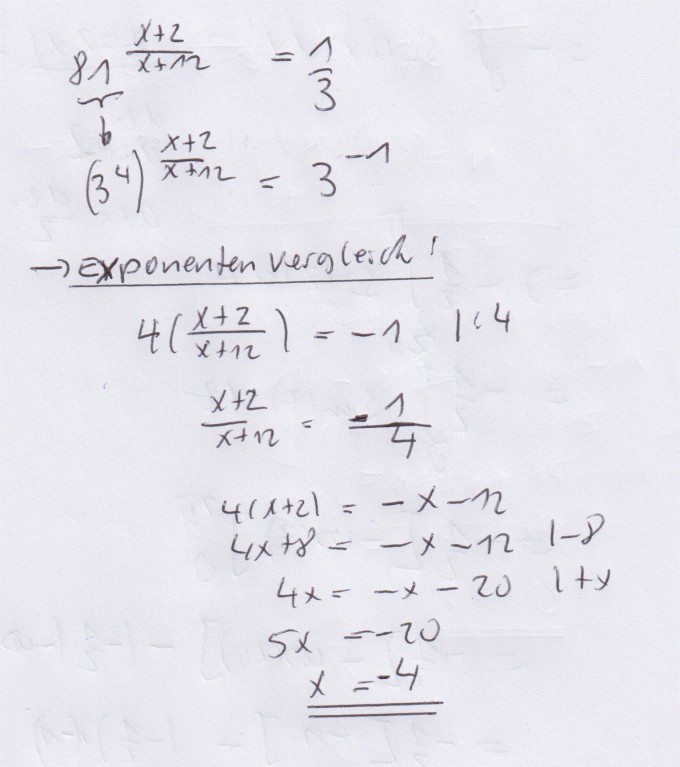 81^((x+2)/(x+12)) = 1/3
(3^4)^((x+2)/(x+12)) = 3^-1
→ Exponentenvergleich!
4((x+2)/(x+12)) = -1 |:4
(x+2)/(x+12) = -1/4
4(x+2) = -x-12
4x+8 = -x-12 |-8
4x = -x-20 |+x
5x = -20
x = -4